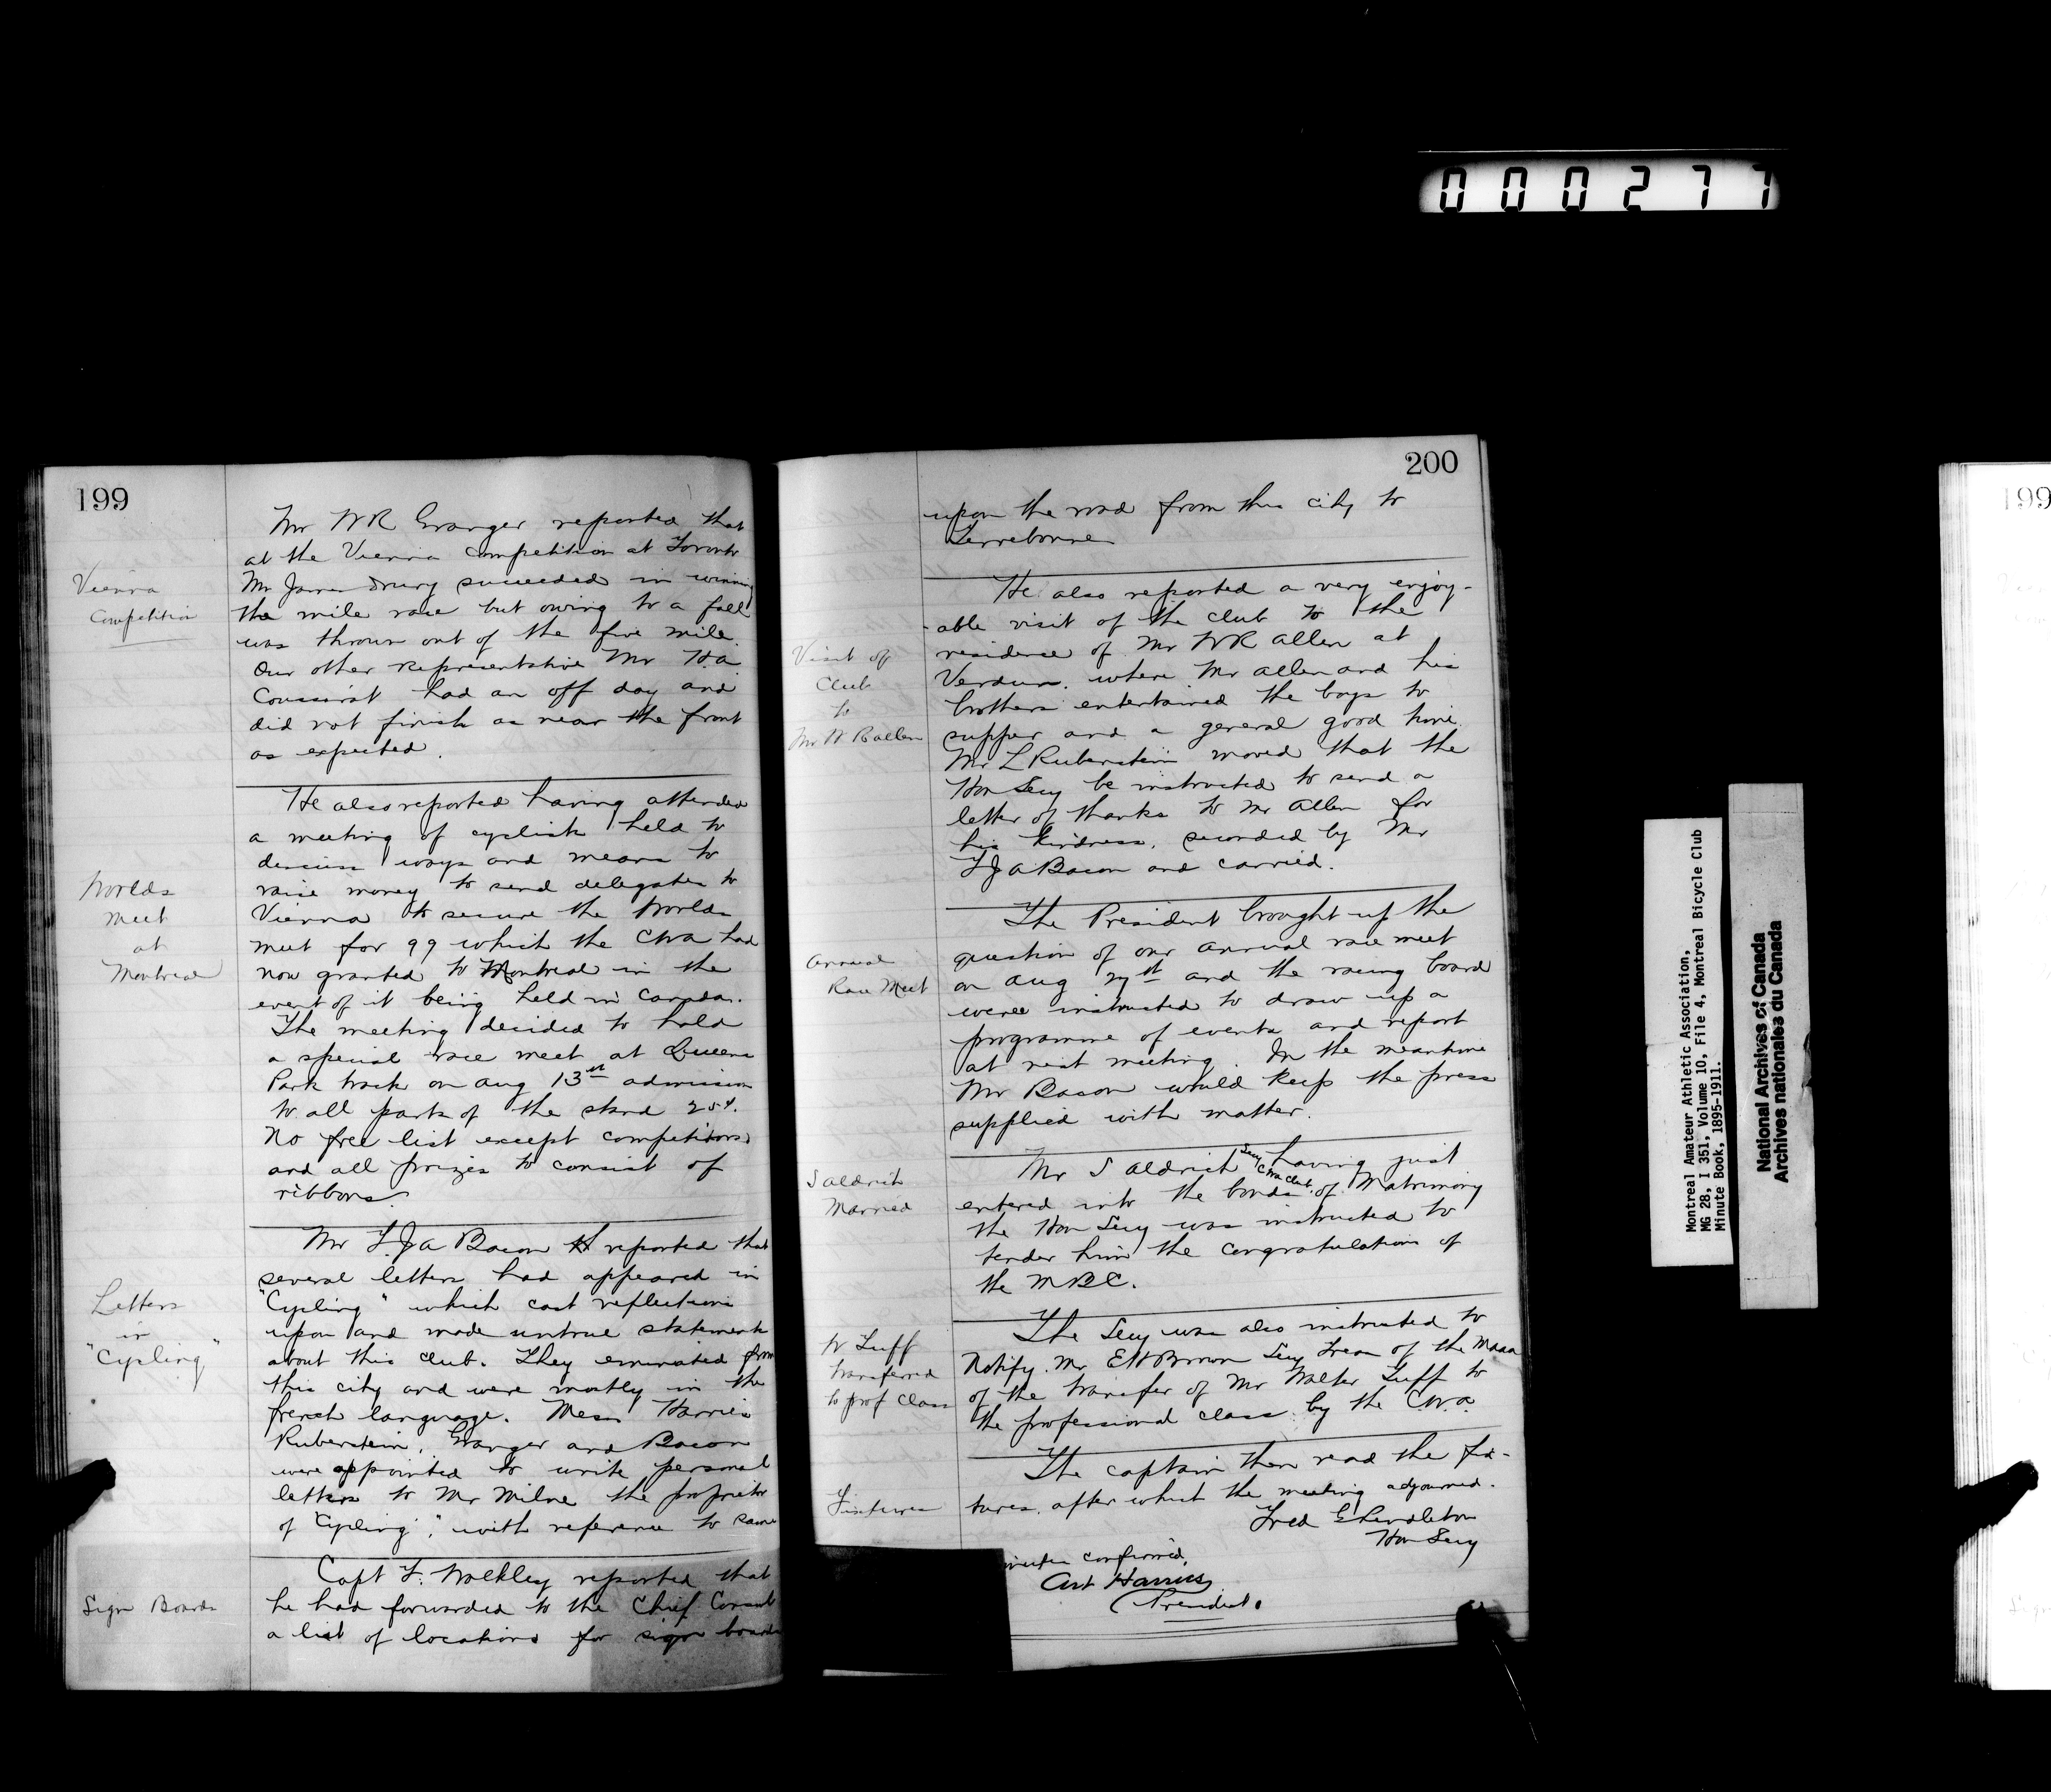 000277
199
Mr WR Granger reported that
at the Vienna Competition at Toronto
Vienna
Competition
Mr James Drury succeeded in winning
the mile race but owing to a fall
was thrown out of the five mile.
Our other representative Mr Ha
had an off day and
did not finish as near the front
as expected.
He also reported having attended
a meeting of cyclists held to
discuss ways and means to
raise money to send delegates to
Worlds
meet
at
Montreal
Vienna to secure the Worlds
meet for 99 which the CWA had
now granted to Montreal in the
event of it being held in Canada.
The meeting decided to hold
a special race meet at Queens
Park track on Aug 13th admission
to all parts of the stand 25¢.
No free list except competitors
and all prizes to consist of
ribbons.
Mr F.J.A Bacon reported that
several letters had appeared in
Letters
in
"Cycling"
"Cycling" which cast reflections
upon and made untrue statements
about this club. They eminated from
this city and were mostly in the
french language. Mess Harries
Rubenstein, Granger and Bacon
were appointed to write personal
letters to Mr Milne the proprietor
of "Cycling", with reference to same
Sign Boards
Capt F. Walkley reported that
he had forwarded to the Chief Consul
a list of locations for sign boards
200
upon the road from this city to
Terrebonne
He also reported a very enjoy-
able visit of the club to the
Visit of
Club
to
Mr W R Allen
residence of Mr WR Allen at
Verdun. where Mr Allen and his
brothers entertained the boys to
supper and a general good time.
Mr L Rubenstein moved that the
Hon Secy be instructed to send a
letter of thanks to Mr Allen for
his kindness, seconded by Mr
F J A Bacon and carried.
The President brought up the
Annual
Race Meet
question of our annual race meet
on Aug and the racing board
were instructed to draw up a
programme of events and report
at next meeting. In the meantime
Mr Bacon would keep the press
supplied with matter.
S Aldrich
Married
Mr S Aldrich Secy CWA Club having just
entered into the bonds of Matrimony
the Hon Secy was instructed to
tender him the congratulations of
the MBC.
W Tuff
transferred
to prof Class
The Secy was also instructed to
Notify Mr EW Brown Secy Treas of the Maaa
of the transfer of Mr Walter Tuff to
the professional class by the C.W.A.
The captain then read the fix-
Fixtures
tures, after which the meeting adjourned.
Fred
Hon Secy
minutes confirmed,
Art Harries
President.
Montreal Amateur Athletic Association,
MG 28, I 351, Volume 10, File 4, Montreal Bicycle Club
Minute Book, 1895-1911.
National Archives of Canada
Archives nationales du Canada
199